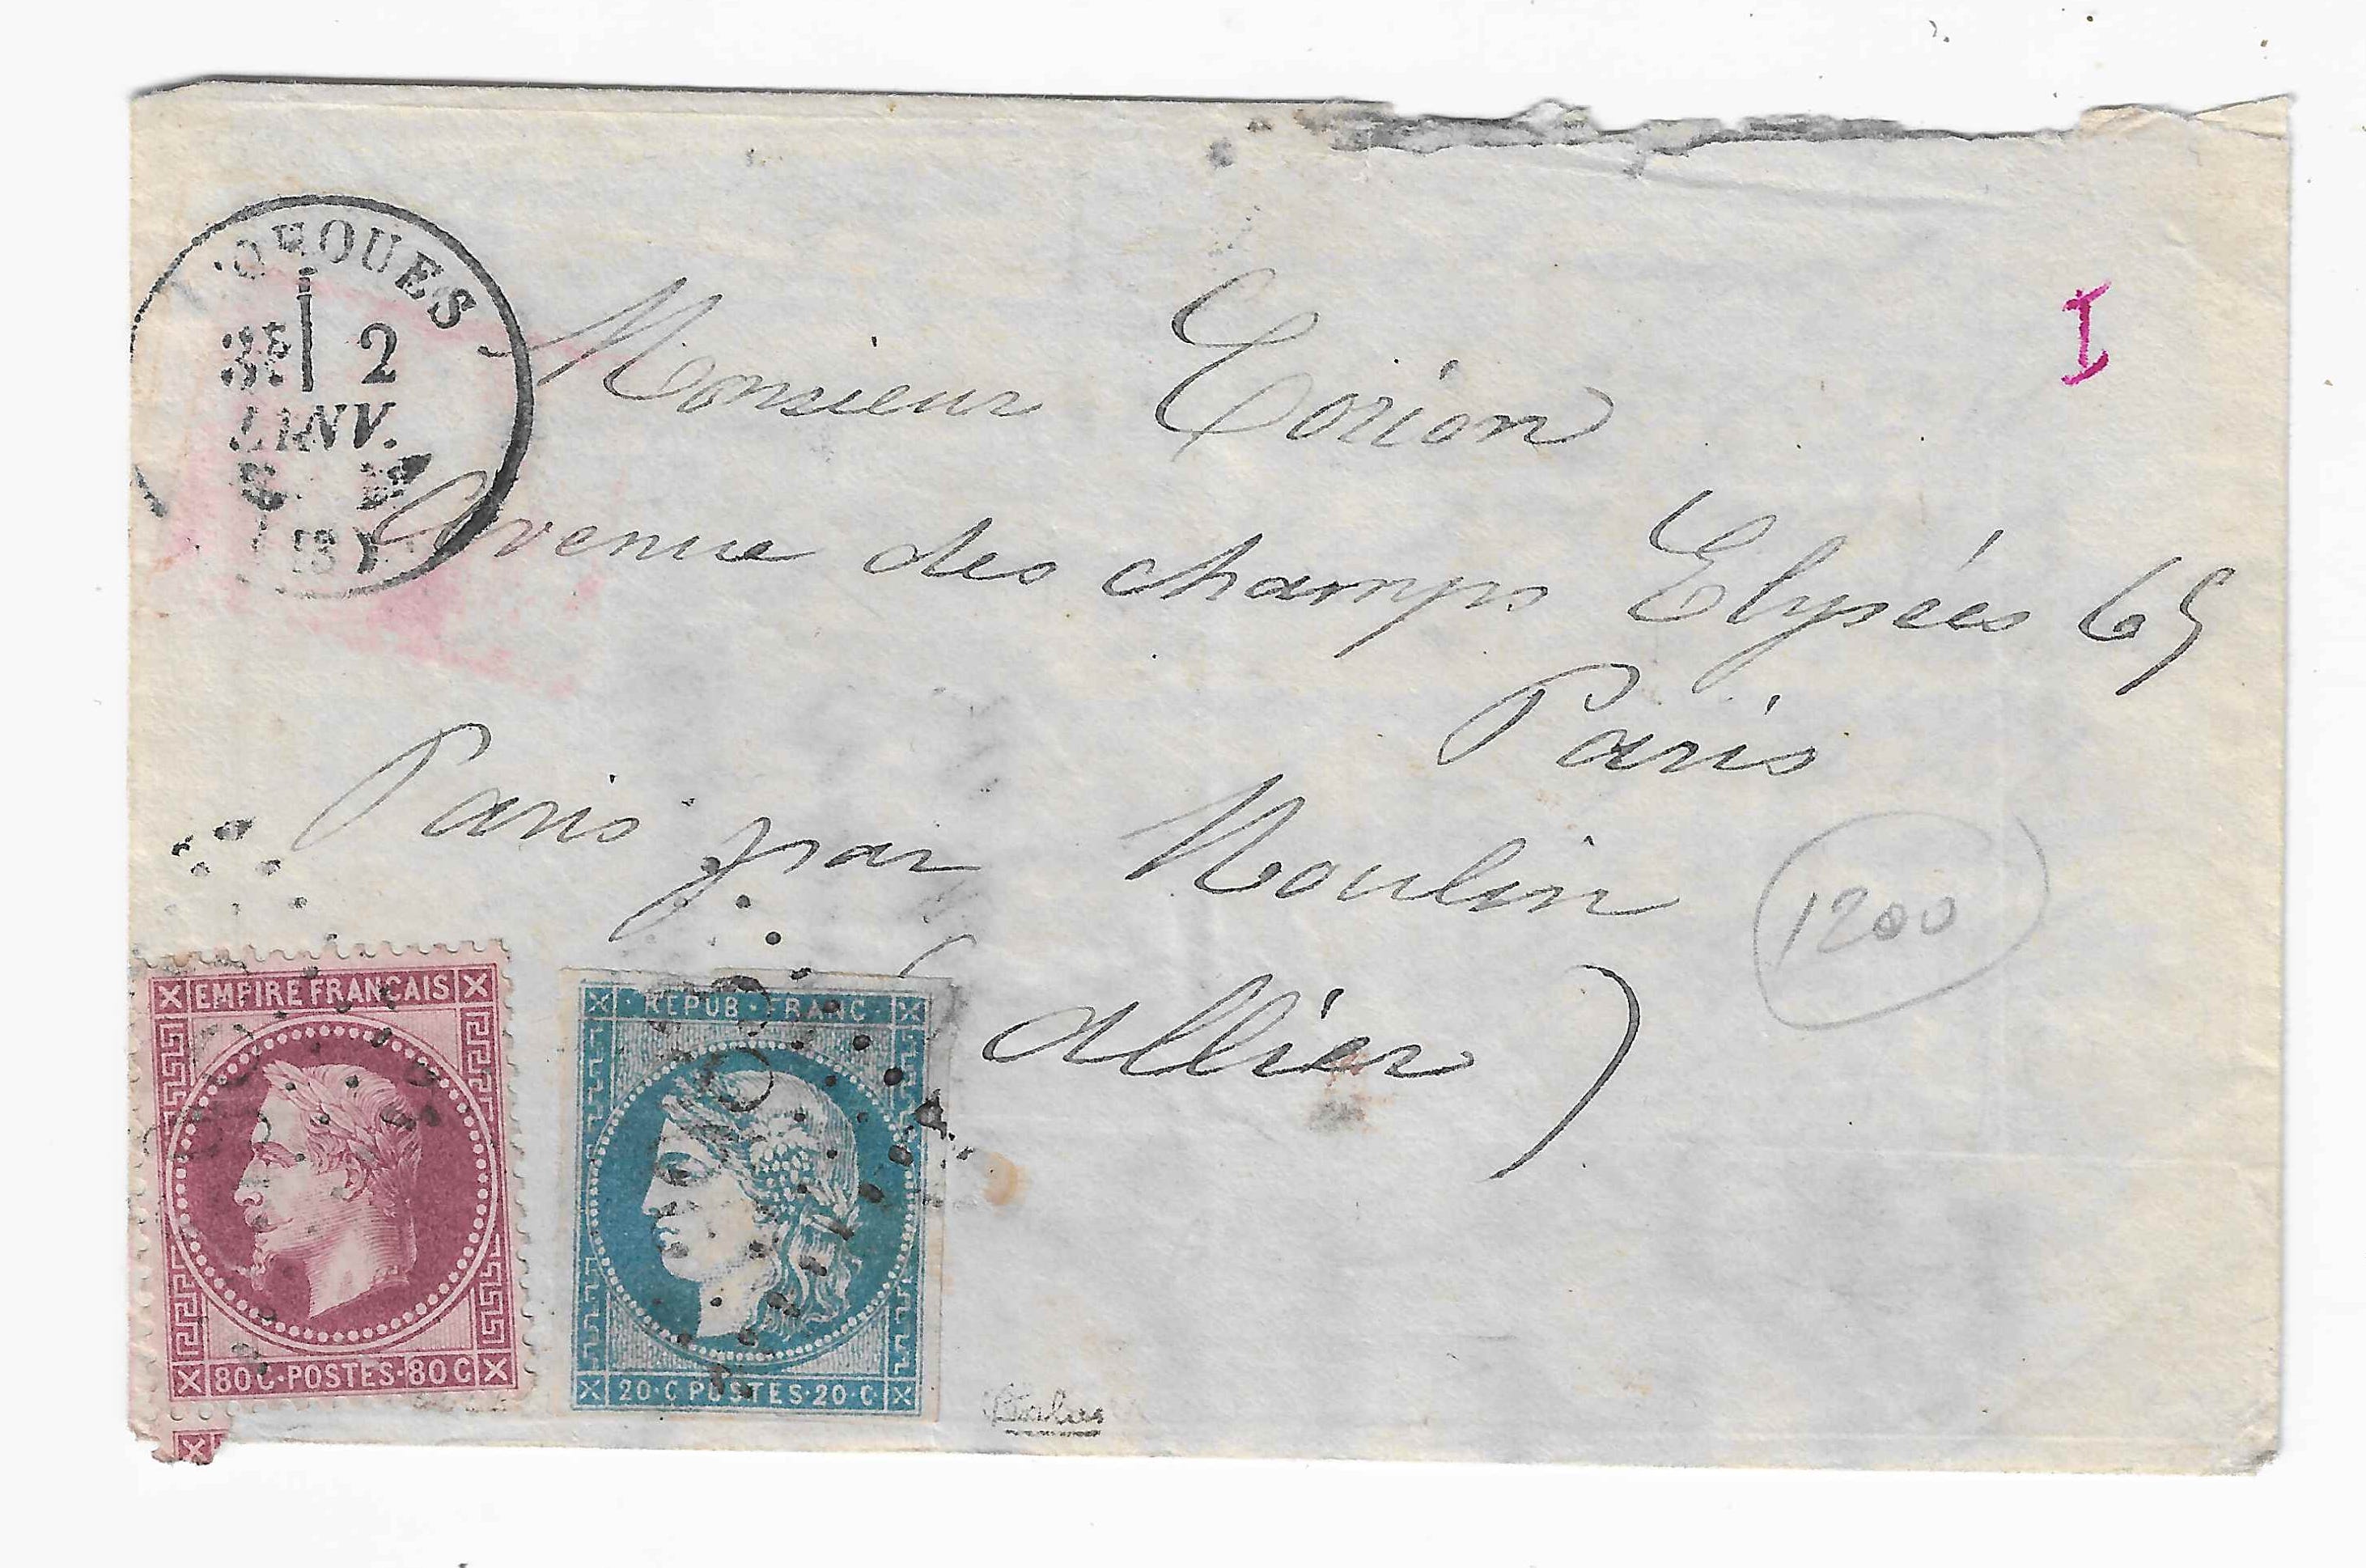 2
JANV.
Monsieur Torion
Avenue des champs Elysées 65
Paris
Paris par Moulin
(allier)
I
1200
EMPIRE FRANÇAIS
80 C·POSTES·80 C
REPUB·FRANC·
20·C POSTES·20·C